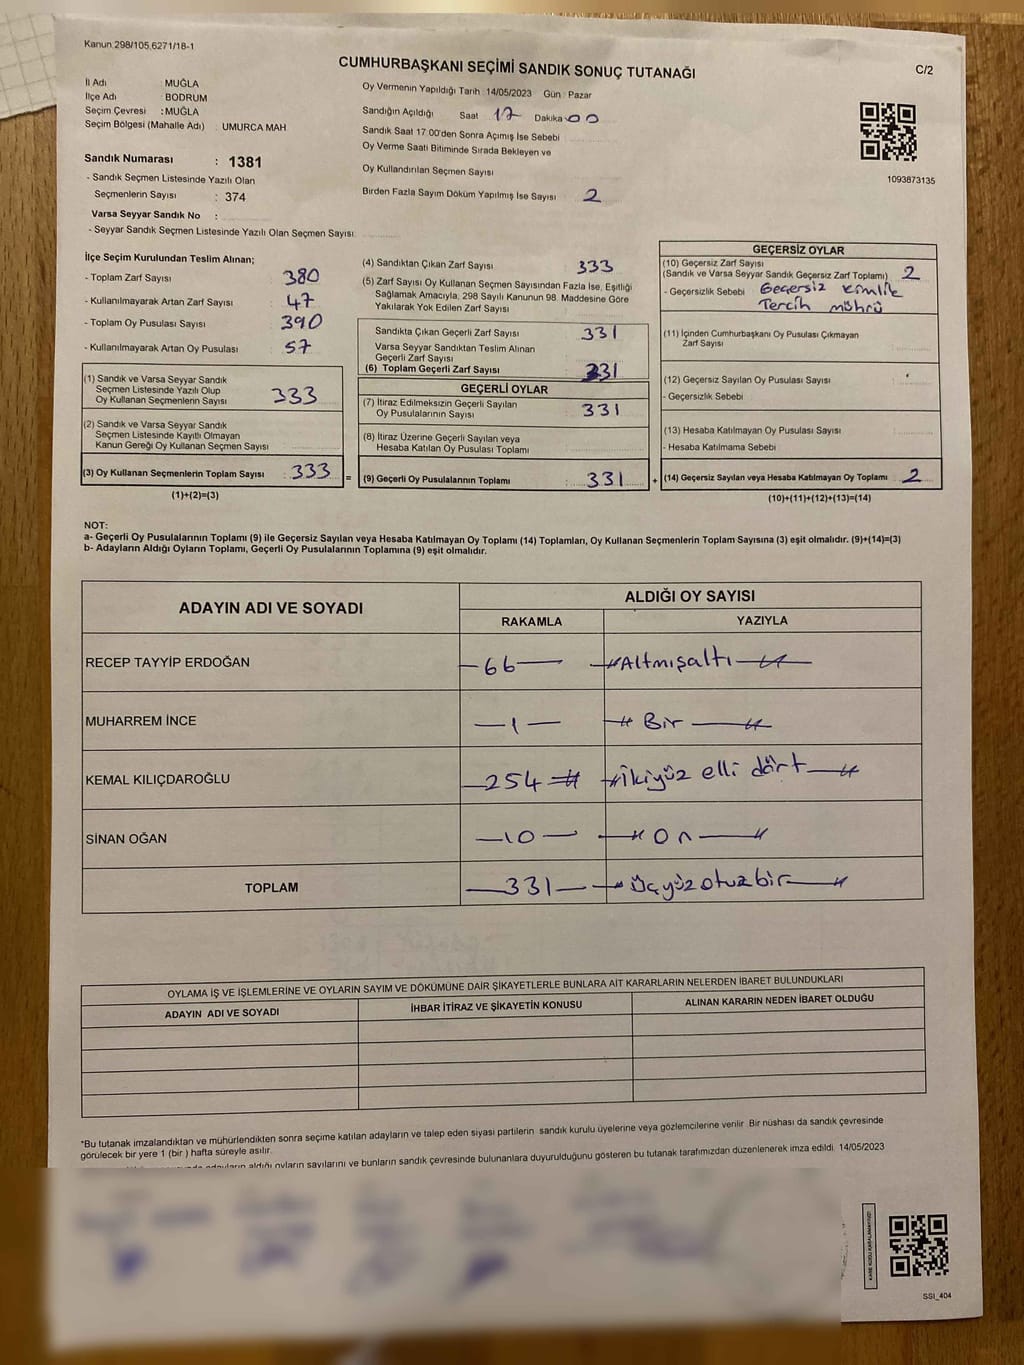 Kanun 298/105,6271/18-1
CUMHURBAŞKANI SEÇİMİ SANDIK SONUÇ TUTANAĞI
C/2
İl Adı : MUĞLA
İlçe Adı : BODRUM
Seçim Çevresi : MUĞLA
Seçim Bölgesi (Mahalle Adı) : UMURCA MAH
Sandık Numarası : 1381
- Sandık Seçmen Listesinde Yazılı Olan
Seçmenlerin Sayısı : 374
Varsa Seyyar Sandık No :
- Seyyar Sandık Seçmen Listesinde Yazılı Olan Seçmen Sayısı
Oy Vermenin Yapıldığı Tarih : 14/05/2023 Gün : Pazar
Sandığın Açıldığı Saat 17 Dakika 00
Sandık Saat 17:00'den Sonra Açımış İse Sebebi
Oy Verme Saati Bitiminde Sırada Bekleyen ve
Oy Kullandırılan Seçmen Sayısı
Birden Fazla Sayım Döküm Yapılmış İse Sayısı 2
1093873135
İlçe Seçim Kurulundan Teslim Alınan;
- Toplam Zarf Sayısı 380
- Kullanılmayarak Artan Zarf Sayısı 47
- Toplam Oy Pusulası Sayısı 390
- Kullanılmayarak Artan Oy Pusulası 57
(1) Sandık ve Varsa Seyyar Sandık
Seçmen Listesinde Yazılı Olup
Oy Kullanan Seçmenlerin Sayısı 333
(2) Sandık ve Varsa Seyyar Sandık
Seçmen Listesinde Kayıtlı Olmayan
Kanun Gereği Oy Kullanan Seçmen Sayısı
(3) Oy Kullanan Seçmenlerin Toplam Sayısı : 333 =
(1)+(2)=(3)
(4) Sandıktan Çıkan Zarf Sayısı 333
(5) Zarf Sayısı Oy Kullanan Seçmen Sayısından Fazla İse, Eşitliği
Sağlamak Amacıyla, 298 Sayılı Kanunun 98. Maddesine Göre
Yakılarak Yok Edilen Zarf Sayısı
Sandıkta Çıkan Geçerli Zarf Sayısı 331
Varsa Seyyar Sandıktan Teslim Alınan
Geçerli Zarf Sayısı
(6) Toplam Geçerli Zarf Sayısı 331
GEÇERLİ OYLAR
(7) İtiraz Edilmeksizin Geçerli Sayılan
Oy Pusulalarının Sayısı 331
(8) İtiraz Üzerine Geçerli Sayılan veya
Hesaba Katılan Oy Pusulası Toplamı
(9) Geçerli Oy Pusulalarının Toplamı : 331 +
GEÇERSİZ OYLAR
(10) Geçersiz Zarf Sayısı
(Sandık ve Varsa Seyyar Sandık Geçersiz Zarf Toplamı) 2
- Geçersizlik Sebebi Geçersiz Kimlik
Tercih mührü
(11) İçinden Cumhurbaşkanı Oy Pusulası Çıkmayan
Zarf Sayısı
(12) Geçersiz Sayılan Oy Pusulası Sayısı
- Geçersizlik Sebebi
(13) Hesaba Katılmayan Oy Pusulası Sayısı
- Hesaba Katılmama Sebebi
(14) Geçersiz Sayılan veya Hesaba Katılmayan Oy Toplamı 2
(10)+(11)+(12)+(13)=(14)
NOT:
a- Geçerli Oy Pusulalarının Toplamı (9) ile Geçersiz Sayılan veya Hesaba Katılmayan Oy Toplamı (14) Toplamları, Oy Kullanan Seçmenlerin Toplam Sayısına (3) eşit olmalıdır. (9)+(14)=(3)
b- Adayların Aldığı Oyların Toplamı, Geçerli Oy Pusulalarının Toplamına (9) eşit olmalıdır.
ADAYIN ADI VE SOYADI
ALDIĞI OY SAYISI
RAKAMLA YAZIYLA
RECEP TAYYİP ERDOĞAN 66 Altmışaltı
MUHARREM İNCE 1 Bir
KEMAL KILIÇDAROĞLU 254 ikiyüz elli dört
SİNAN OĞAN 10 On
TOPLAM 331 Üçyüzotuzbir
OYLAMA İŞ VE İŞLEMLERİNE VE OYLARIN SAYIM VE DÖKÜMÜNE DAİR ŞİKAYETLERLE BUNLARA AİT KARARLARIN NELERDEN İBARET BULUNDUKLARI
ADAYIN ADI VE SOYADI İHBAR İTİRAZ VE ŞİKAYETİN KONUSU ALINAN KARARIN NEDEN İBARET OLDUĞU
*Bu tutanak imzalandıktan ve mühürlendikten sonra seçime katılan adayların ve talep eden siyasi partilerin sandık kurulu üyelerine veya gözlemcilerine verilir Bir nüshası da sandık çevresinde
görülecek bir yere 1 (bir ) hafta süreyle asılır.
aldığı oyların sayılarını ve bunların sandık çevresinde bulunanlara duyurulduğunu gösteren bu tutanak tarafımızdan düzenlenerek imza edildi. 14/05/2023
SSI_404